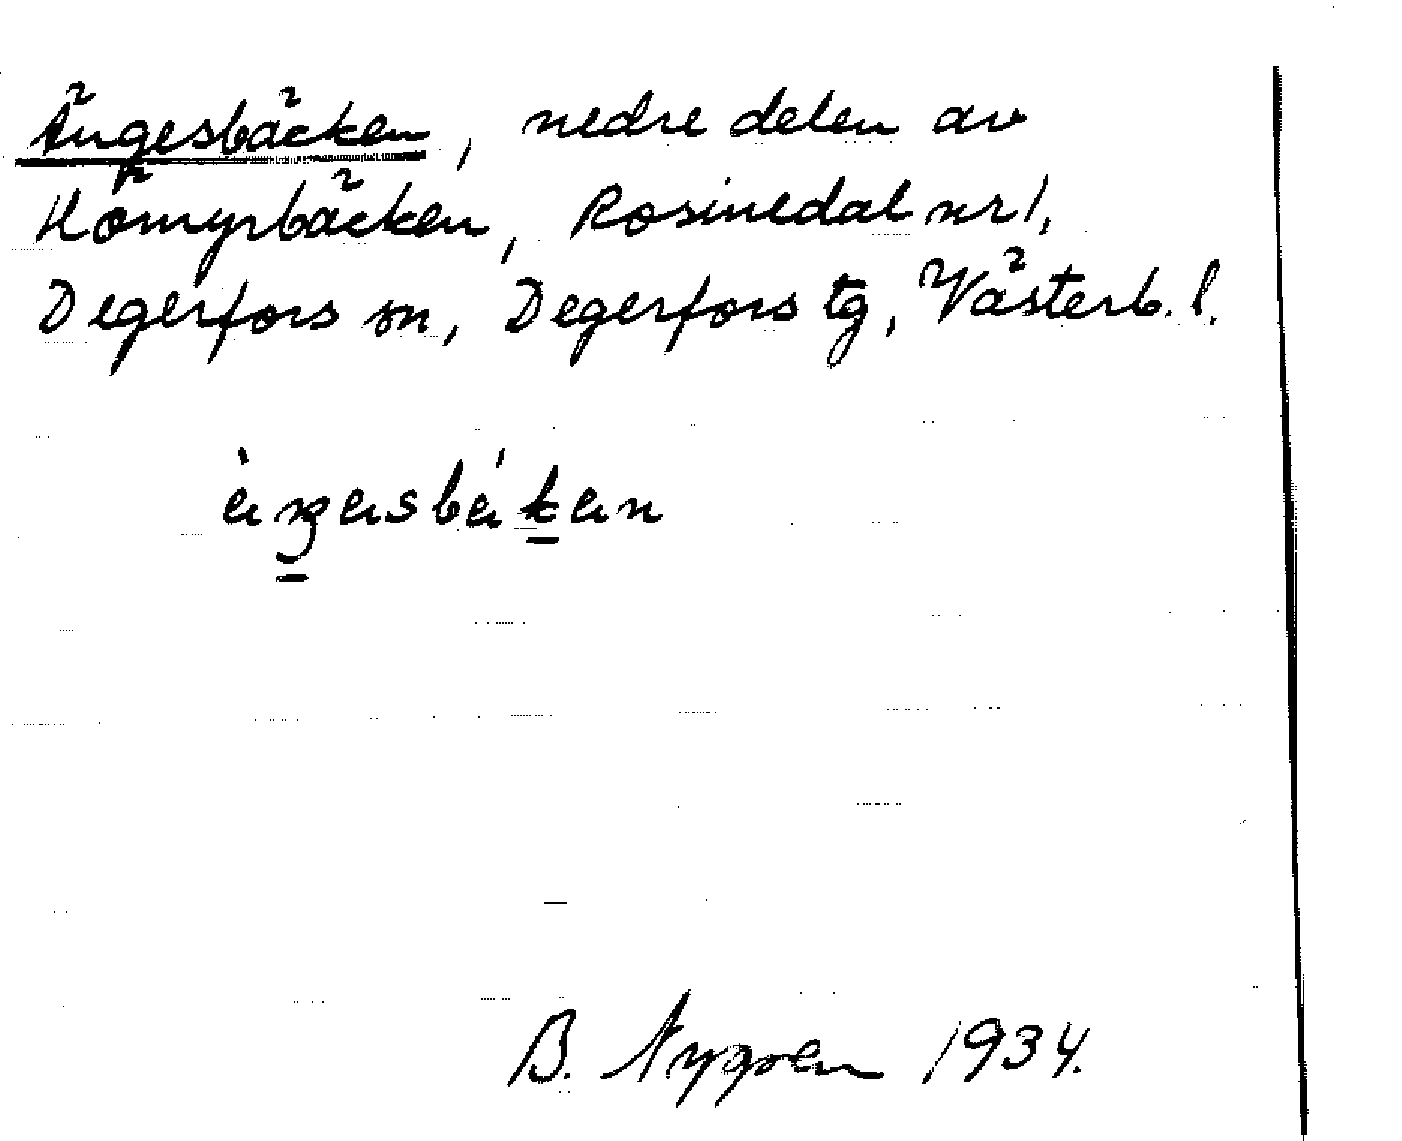 Ängesbäcken, nedre delen av
Hömyrbäcken, Rosinedal nr 1,
Degerfors sn, Degerfors tg, Västerb. l.
B. Nygren 1934.